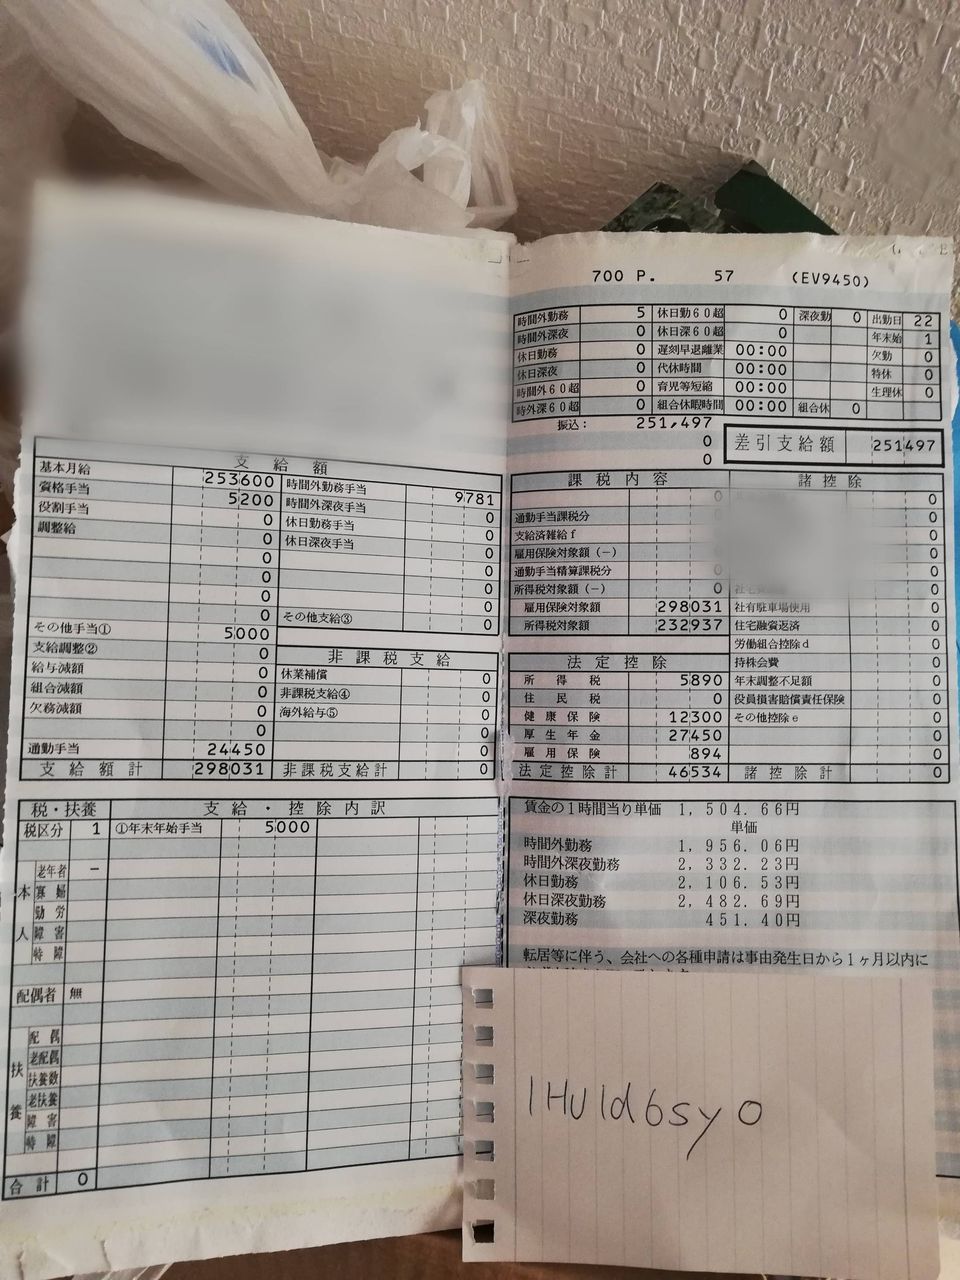 700 P. 57 (EV9450)
時間外勤務 5 休日勤60超 0 深夜勤 0 出勤日 22
時間外深夜 0 休日深60超 0 年末始 1
休日勤務 0 遅刻早退離業 00:00 欠勤 0
休日深夜 0 代休時間 00:00 特休 0
時間外60超 0 育児等短縮 00:00 生理休 0
時外深60超 0 組合休暇時間 00:00 組合休 0
振込: 251,497
0
0
差引支給額 251497
支給額
基本月給 253600 時間外勤務手当 9781
資格手当 5200 時間外深夜手当 0
役割手当 0 休日勤務手当 0
調整給 0 休日深夜手当 0
0 0
0 0
0 0
0 その他支給③ 0
その他手当① 5000
支給調整② 0 非課税支給
給与減額 0 休業補償 0
組合減額 0 非課税支給④ 0
欠務減額 0 海外給与⑤ 0
0 0
通勤手当 24450 0
支給額計 298031 非課税支給計 0
課税内容
0
通勤手当課税分 0
支給済雑給f 0
雇用保険対象額(-) 0
通勤手当精算課税分 0
所得税対象額(-) 0
雇用保険対象額 298031
所得税対象額 232937
法定控除
所得税 5890
住民税 0
健康保険 12300
厚生年金 27450
雇用保険 894
法定控除計 46534
諸控除
0
0
0
0
0
社有駐車場使用 0
住宅融資返済 0
労働組合控除d 0
持株会費 0
年末調整不足額 0
役員損害賠償責任保険 0
その他控除e 0
0
0
諸控除計 0
税・扶養 支給・控除内訳
税区分 1 ①年末年始手当 5000
本人
老年者 -
寡婦
勤労
障害
特障
配偶者 無
扶養
配偶
老配偶
扶養数
老扶養
障害
特障
合計 0
賃金の1時間当り単価 1,504.66円
単価
時間外勤務 1,956.06円
時間外深夜勤務 2,332.23円
休日勤務 2,106.53円
休日深夜勤務 2,482.69円
深夜勤務 451.40円
転居等に伴う、会社への各種申請は事由発生日から1ヶ月以内に
1HU1d6syO